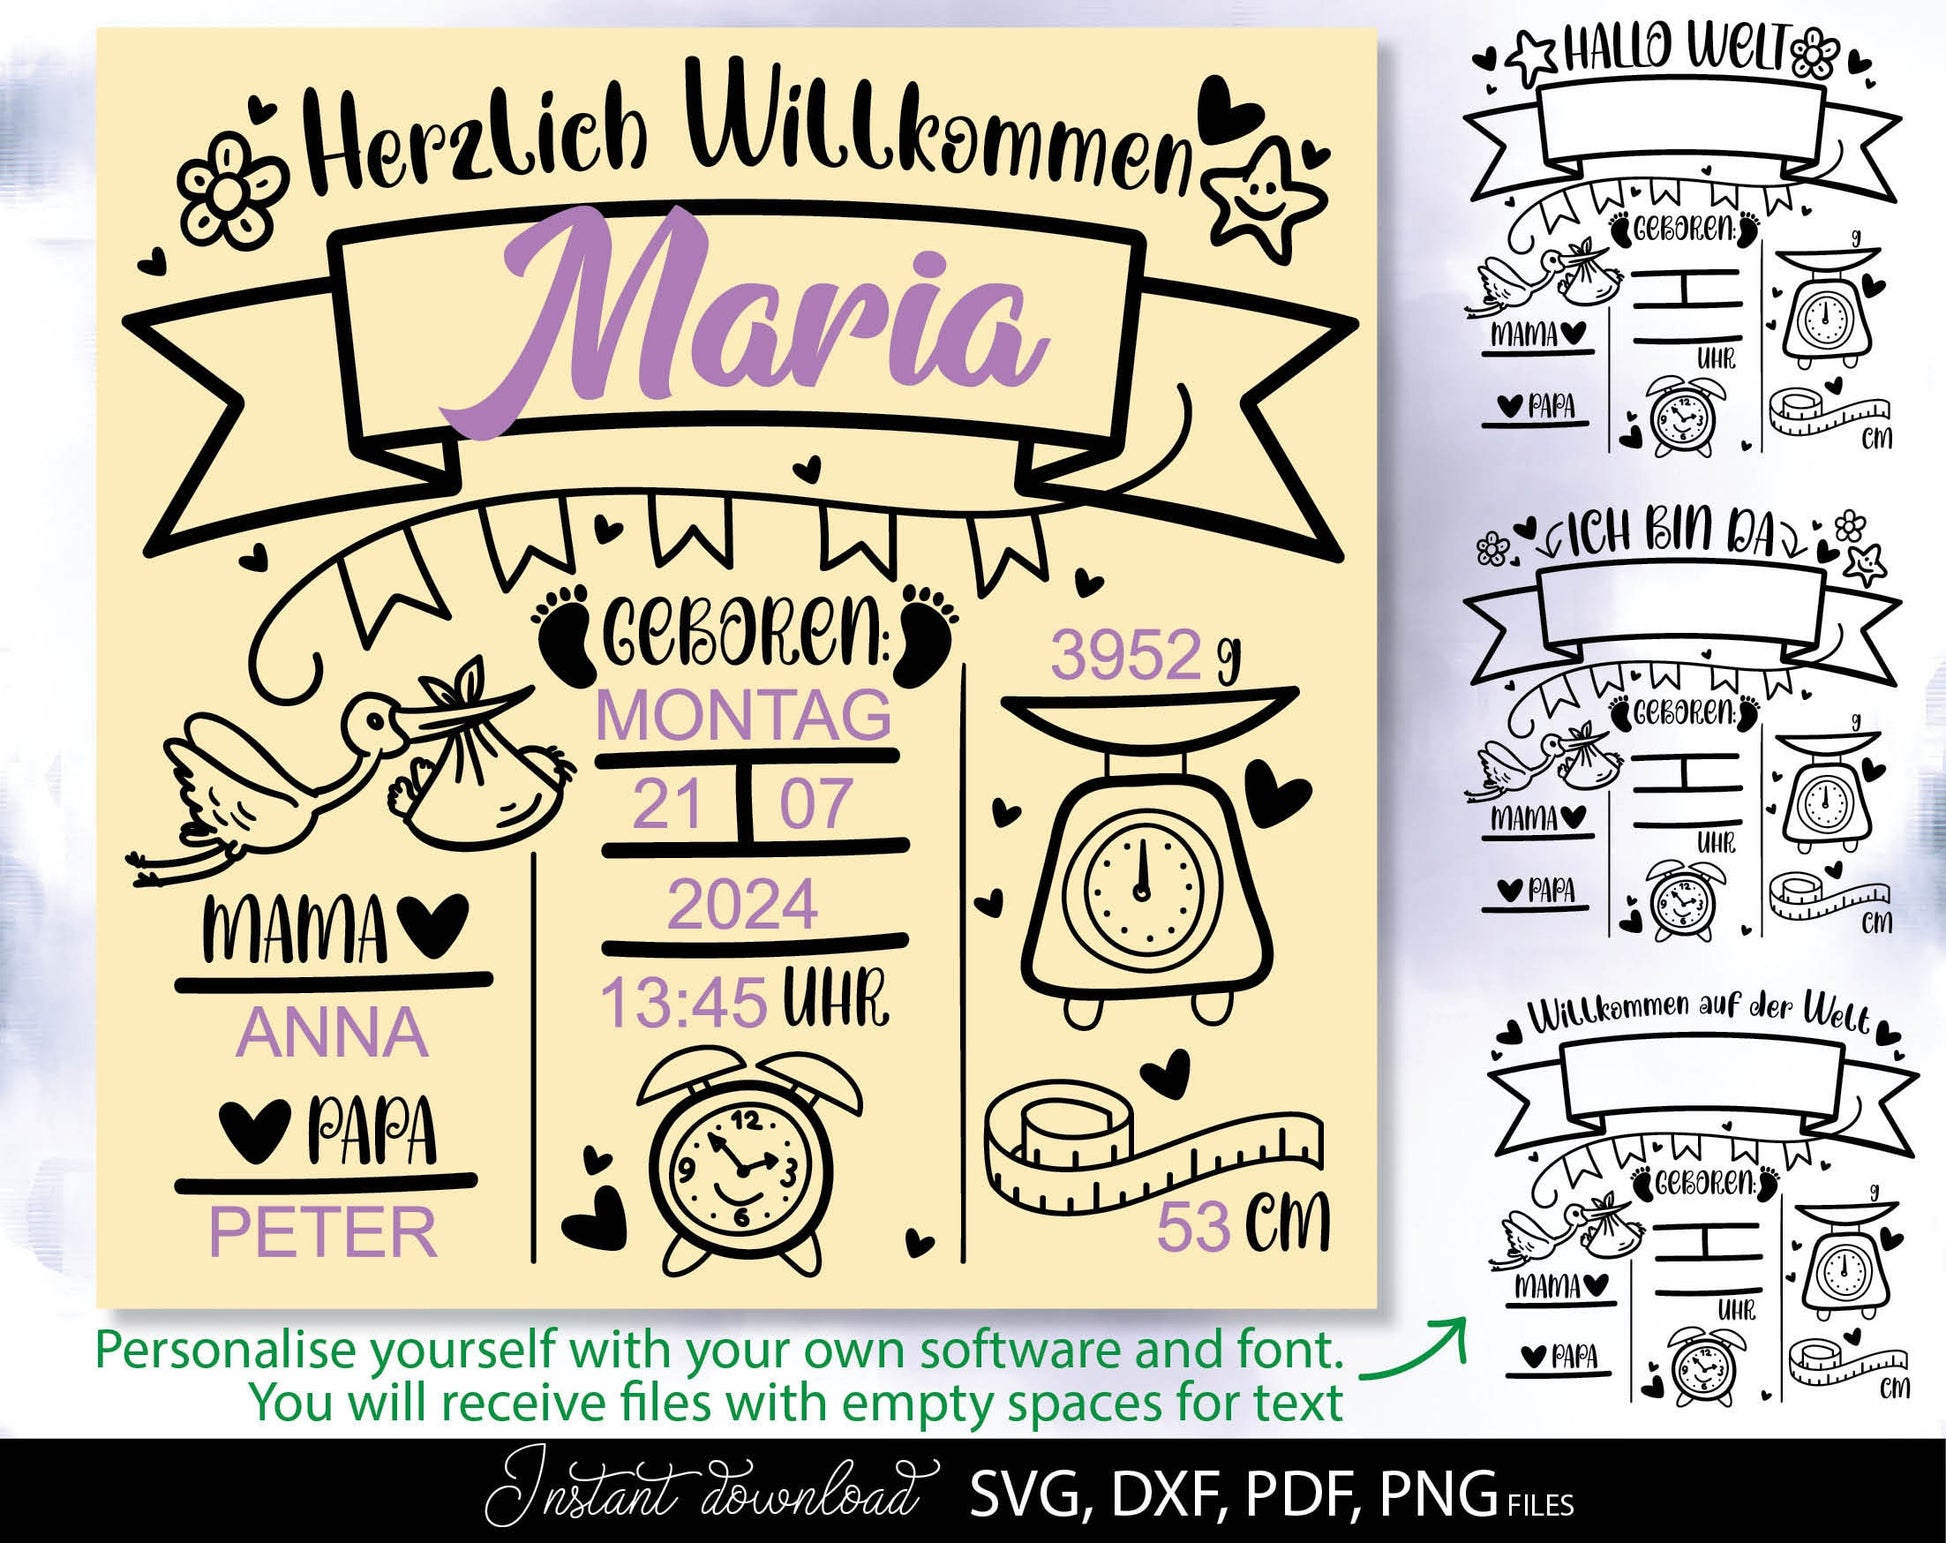 Herzlich Willkommen
Maria
GEBOREN:
MONTAG
21 07
2024
13:45 UHR
12
3
6
9
MAMA
ANNA
PAPA
PETER
3952 g
53 CM
HALLO WELT
GEBOREN:
g
MAMA
UHR
PAPA
12
9 3
6
CM
ICH BIN DA
GEBOREN:
g
MAMA
UHR
PAPA
12
9 3
6
CM
Willkommen auf der Welt
GEBOREN:
g
MAMA
UHR
PAPA
12
9 3
6
CM
Personalise yourself with your own software and font.
You will receive files with empty spaces for text
Instant download SVG, DXF, PDF, PNG FILES